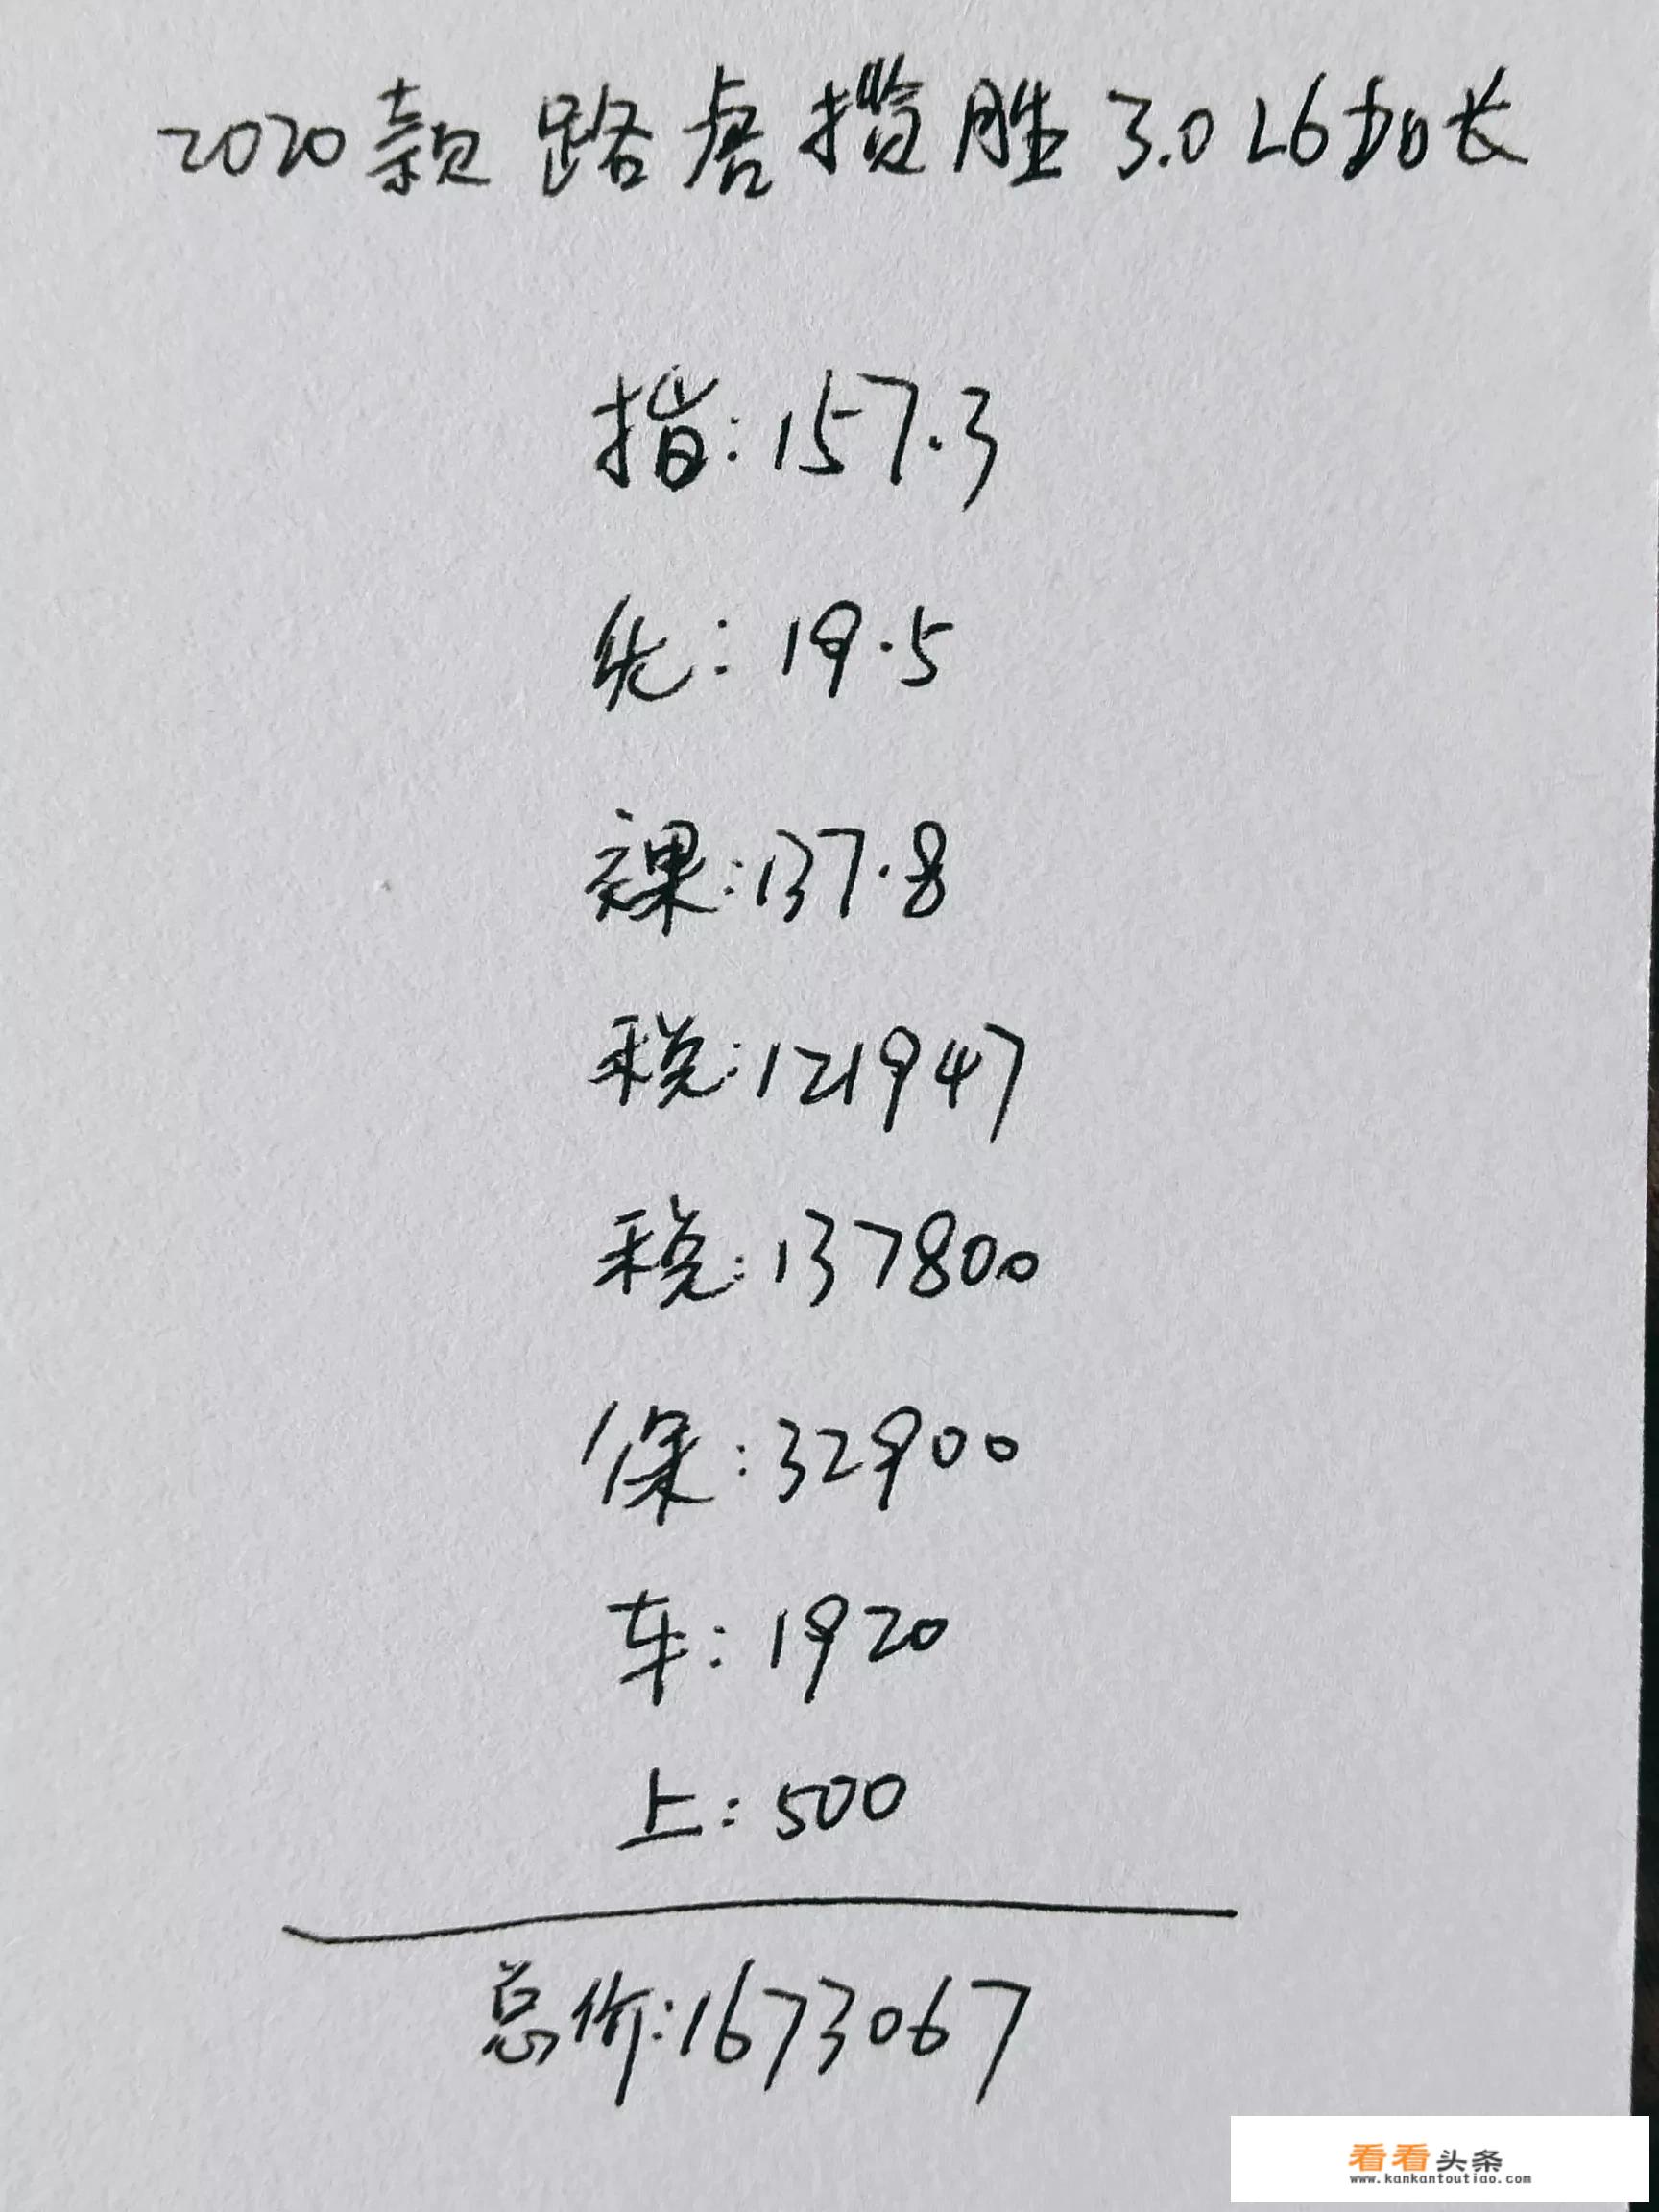 2020款 路虎揽胜 3.0 L6加长
指:157.3
优:19.5
裸:137.8
税:121947
税:137800
保:32900
车:1920
上:500
总价:1673067
看看头条
www.kankantoutiao.com